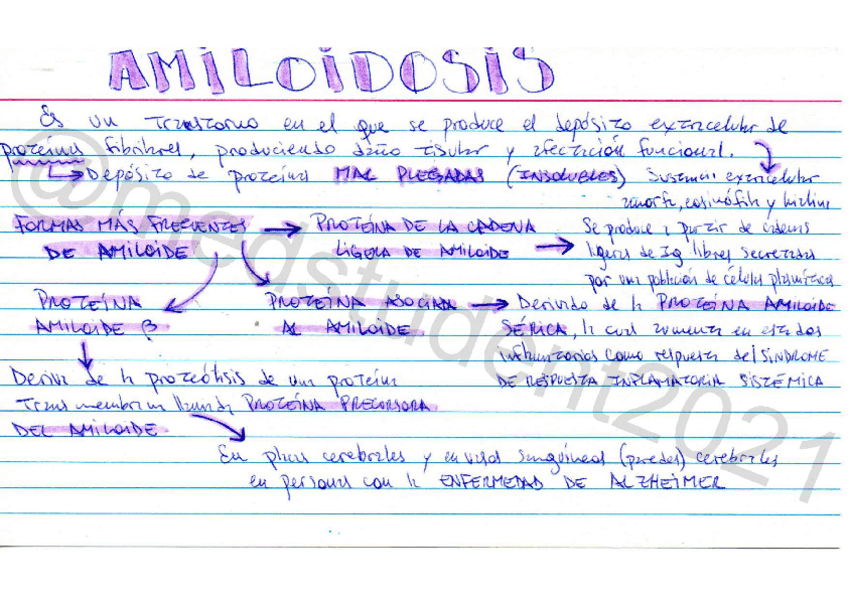 AMILOIDOSIS
Es un transtorno en el que se produce el depósito extracelular de
proteínas fibrilares, produciendo daño tisular y afectación funcional.
Depósito de proteína MAL PLEGADAS (INSOLUBLES) Sustancia extracelular
amorfa, eosinófila y hialina
FORMAS MÁS FRECUENTES
DE AMILOIDE
PROTEÍNA DE LA CADENA
LIGERA DE AMILOIDE
Se produce a partir de cadenas
ligeras de Ig libres secretadas
por una población de células plasmáticas
PROTEÍNA
AMILOIDE β
PROTEÍNA ASOCIADA
AL AMILOIDE
Derivado de la PROTEÍNA AMILOIDE
SÉRICA, la cual aumenta en estados
inflamatorios como respuesta del SÍNDROME
DE RESPUESTA INFLAMATORIA SISTÉMICA
Deriva de la proteólisis de una proteína
transmembrana llamada PROTEÍNA PRECURSORA
DEL AMILOIDE
En placas cerebrales y en vasos sanguíneos (paredes) cerebrales
en personas con la ENFERMEDAD DE ALZHEIMER
@medstudent2021